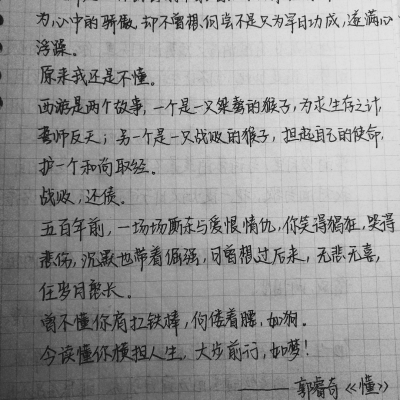 为心中的骄傲，却不曾想，何尝不是只为早日功成，遂满心
浮躁。
原来我还是不懂。
西游是两个故事，一个是一只桀骜的猴子，为求生存之计，
兴师反天；另一个是一只战败的猴子，担起自己的使命，
护一个和尚取经。
战败，还债。
五百年前，一场场厮杀与爱恨情仇，你笑得猖狂，哭得
悲伤，沉默也带着倔强，可曾想过后来，无悲无喜，
任岁月愈长。
曾不懂你肩扛铁棒，佝偻着腰，如狗。
今读懂你横担人生，大步前行，如梦！
——郭睿奇《懂》